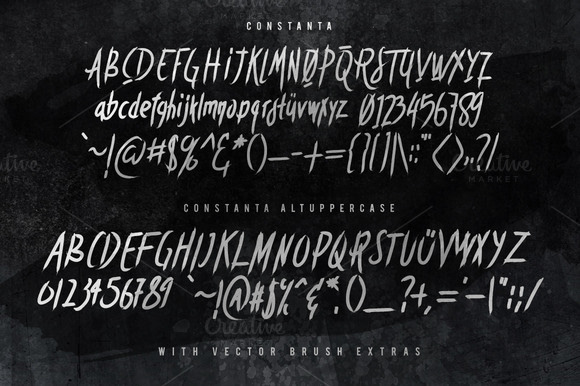 CONSTANTA
ABCDEFGHiJKlMNØPQRSTUVWXYZ
abcdefghijklmnopqrstüvwxyz Ø123456789
`~!@#$%^&*()_-+={}[]|\:;"'<>,.?/
CONSTANTA ALTUPPERCASE
ABCDEFGHIJKLMNOPQRSTUÜVWXYZ
0123456789 `~!@#$%^&*.()_?+,=·-|":;/
WITH VECTOR BRUSH EXTRAS
Creative
MARKET